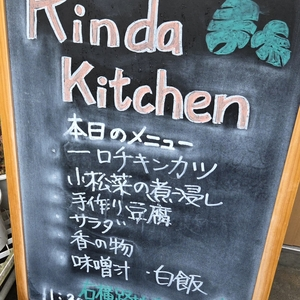 Rinda
Kitchen
本日のメニュー
一口チキンカツ
小松菜の煮浸し
手作り豆腐
サラダ
香の物
味噌汁・白飯